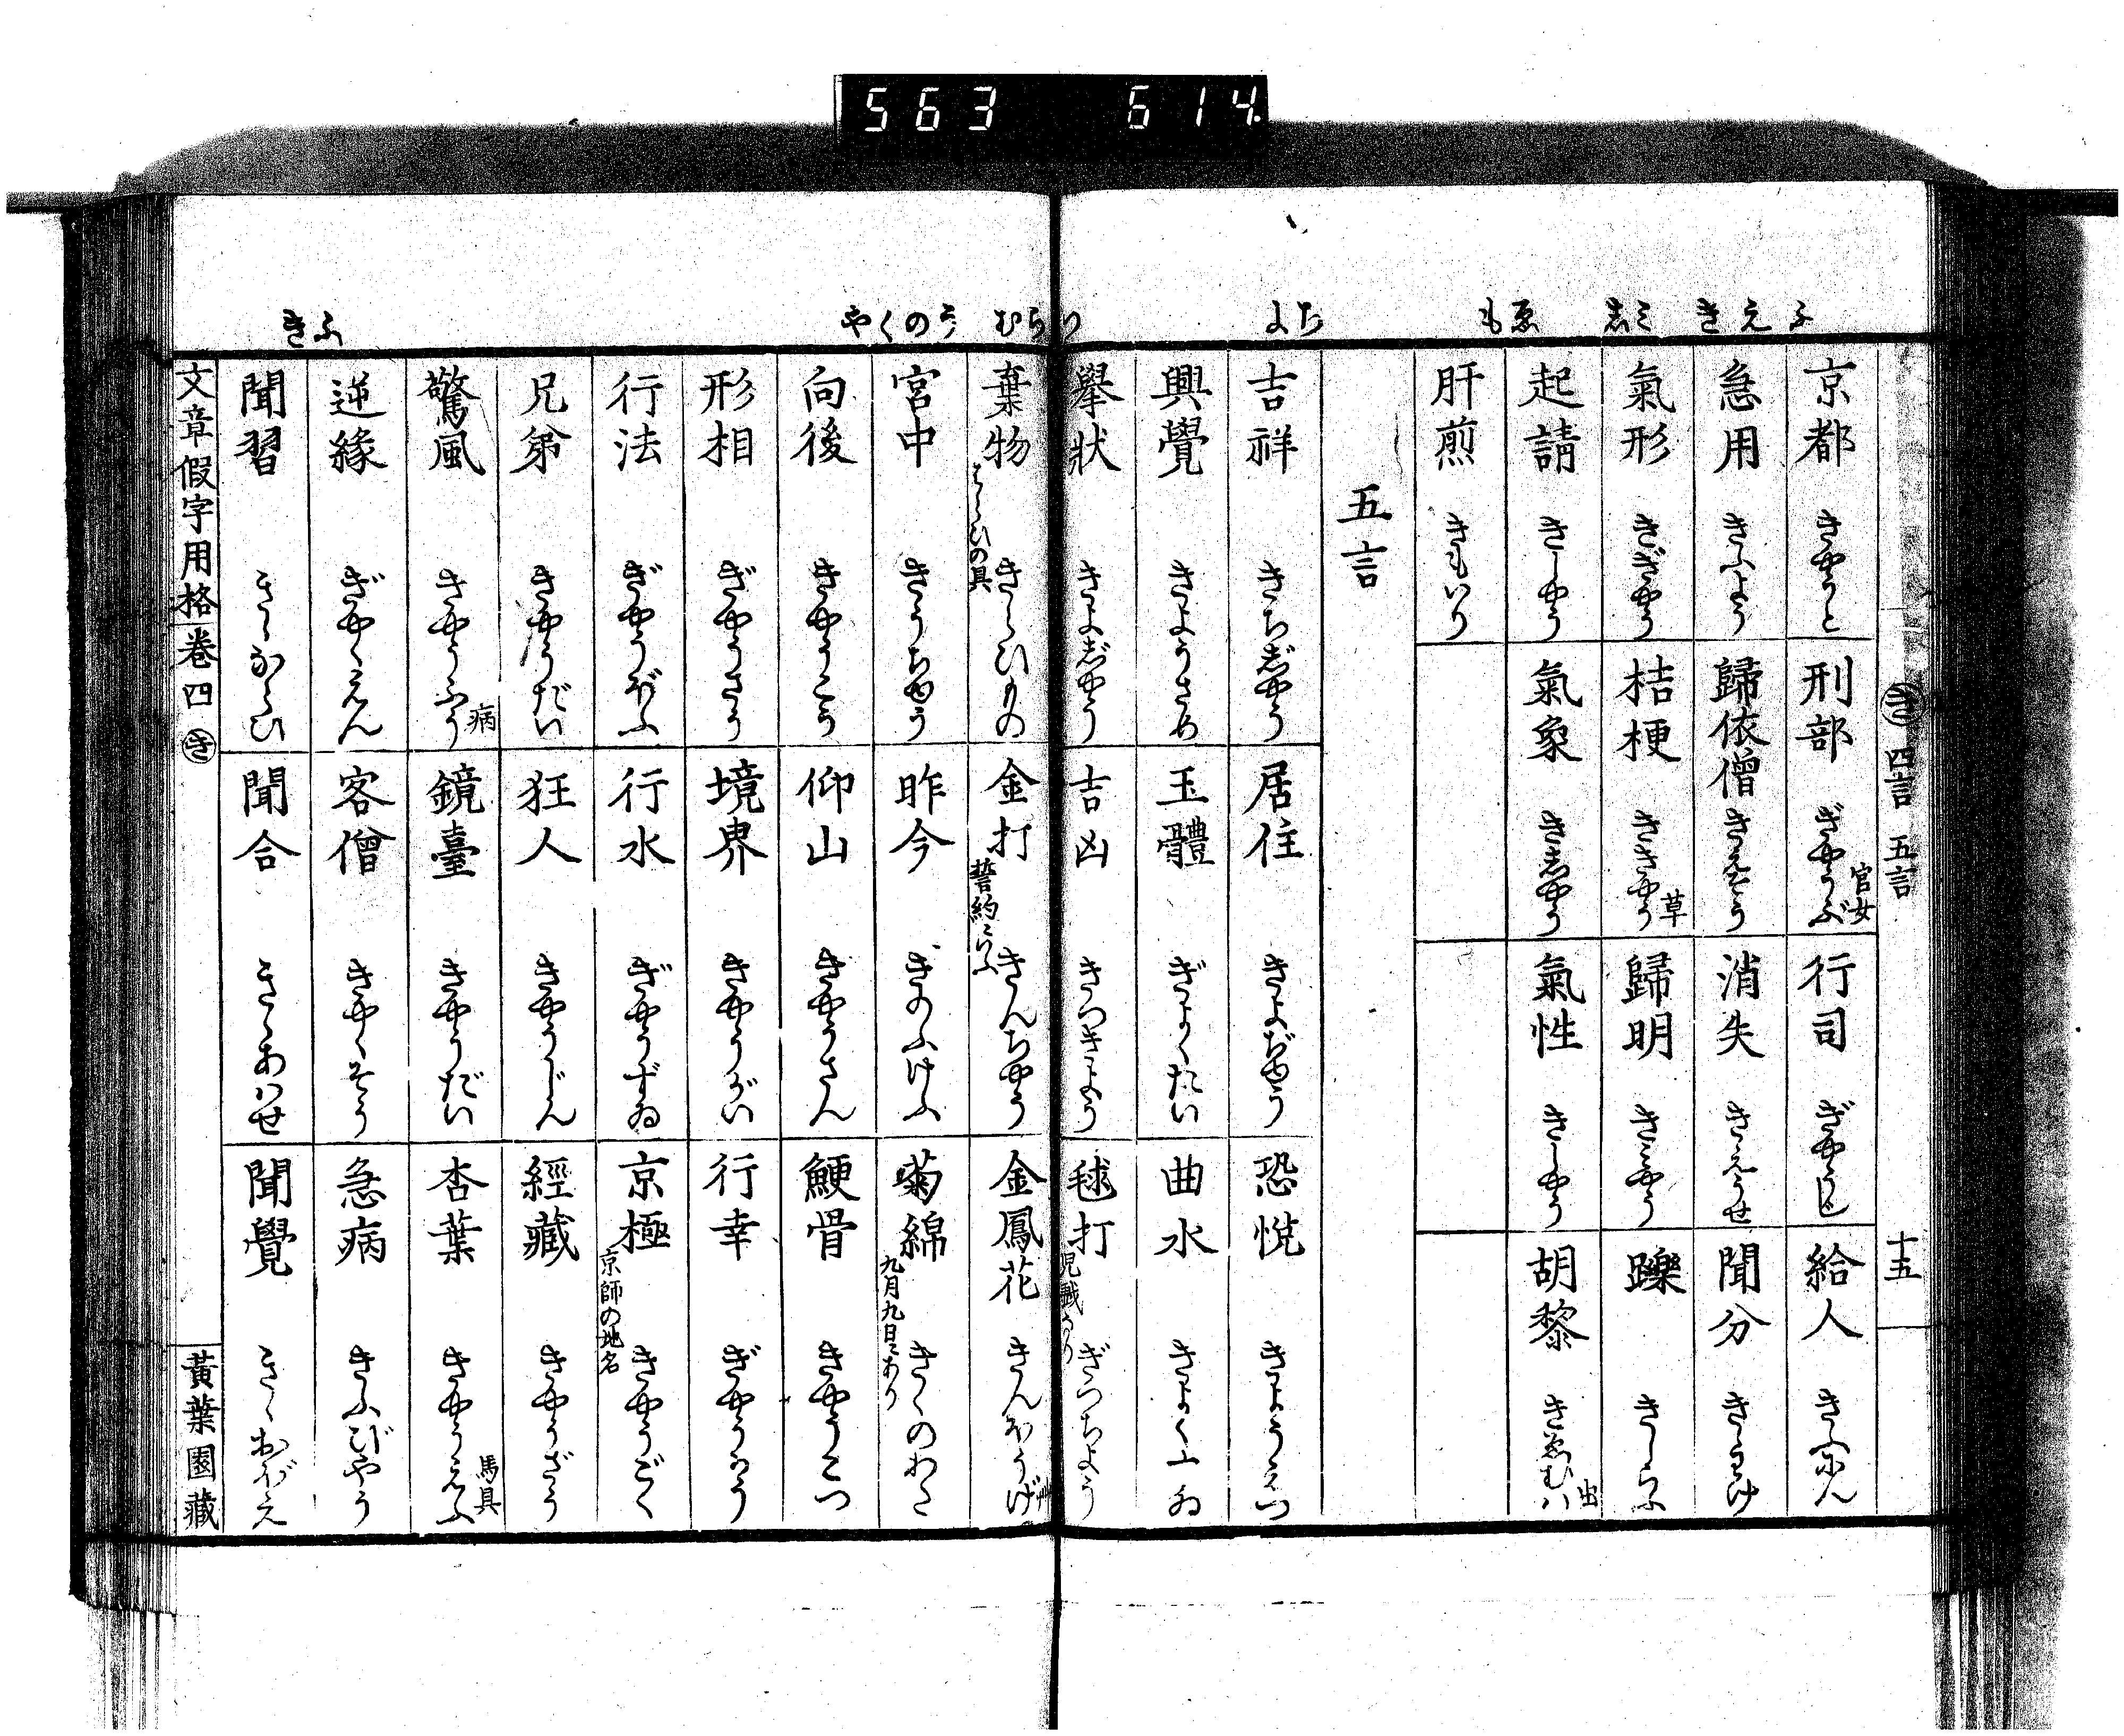 563 614.
ふ え き ミ 志 ゑ も た よ り ら む う の く や ふ き
き 四言 五言 十五
京都 きやうと 刑部 ぎやうぶ 官女 行司 ぎやうじ 給人 きふにん
急用 きふよう 歸依僧 きえそう 消失 きえうせ 聞分 きゝわけ
氣形 きぎやう 桔梗 ききやう 草 歸明 きミやう 躒 きしらふ
起請 きしやう 氣象 き志やう 氣性 きしやう 胡黎 きゑむハ 虫
肝煎 きもいり
五言
吉祥 きち志゛やう 居住 きよぢゆう 恐悦 きようえつ
興覺 きようさめ 玉體 ぎよくたい 曲水 きよくふゐ
擧狀 きよ志゛やう 吉凶 きつきよう 毬打 児戯なり ぎつちよう
棄物 きらひもの 金打 誓約にいふ きんちやう 金鳳花 きんほうげ 艸
宮中 きうちゆう 昨今 きのふけふ 菊綿 九月九日ニあり きくのわた
向後 きやうこう 仰山 きやうさん 鯁骨 きやうこつ
形相 ぎやうさう 境界 きやうがい 行幸 ぎやうかう
行法 ぎやうぼふ 行水 ぎやうずゐ 京極 京師の地名 きやうごく
兄弟 きやうだい 狂人 きやうじん 經藏 きやうざう
驚風 きやうふう 病 鏡臺 きやうだい 杏葉 きやうえふ 馬具
逆緣 ぎやくえん 客僧 きやくそう 急病 きふびやう
聞習 きゝならひ 聞合 きゝあハせ 聞覺 きゝおぼえ
文章假字用格 卷四 き 黃葉園藏